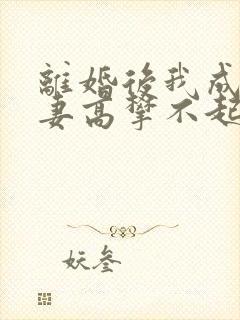 離婚後我成
妻高攀不起
妖叁